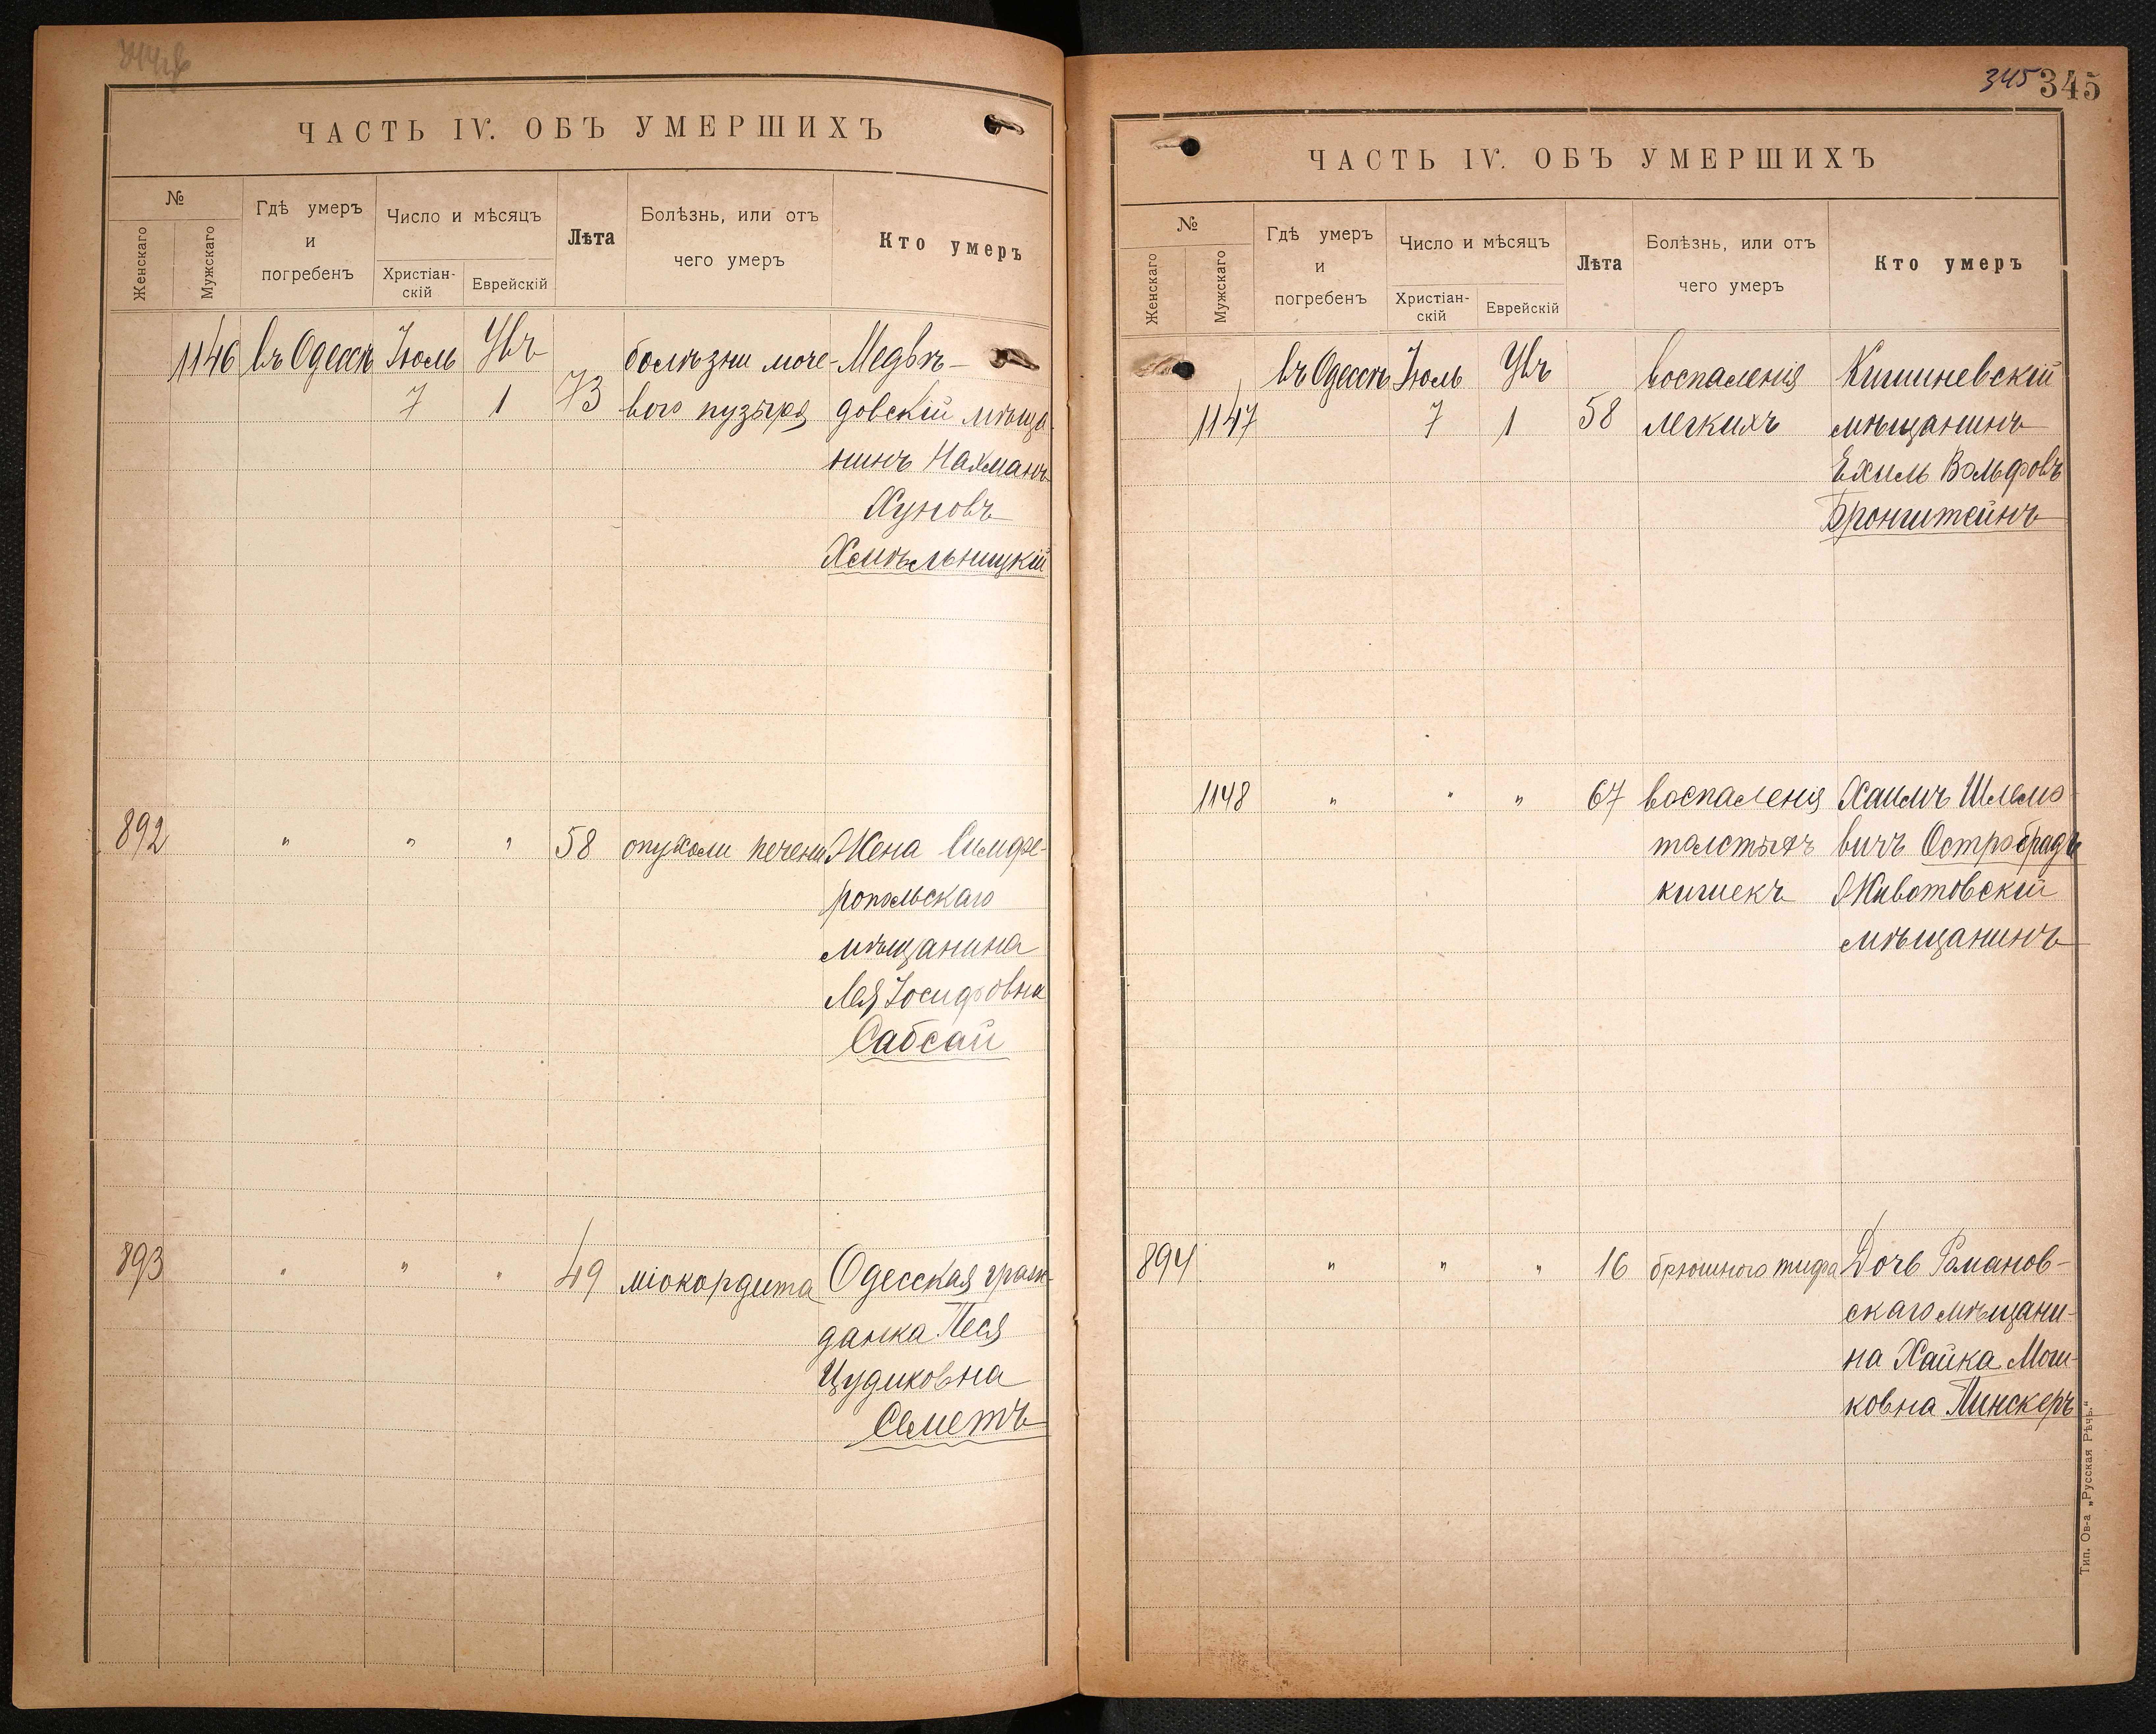 ЧАСТЬ IV. ОБЪ УМЕРШИХЪ
№
Женскаго
Мужскаго
Гдѣ умеръ
и
погребенъ
Число и мѣсяцъ
Христіан-
скій
Еврейскій
Лѣта
Болѣзнь, или отъ
чего умеръ
Кто умеръ
1146 въ Одессѣ Іюль Увъ болѣзни моче- Медвѣ-
7 1 73 вого пузыря довскій мѣща-
нинъ Нахманъ
Хуновъ
Хмѣльницкій
892 " " " 58 опухоли печени Жена Симфе-
ропольскаго
мѣщанина
Лея Іосифовна
Сабсай
893 " " " 49 міокордита Одесская граж-
данка Песя
Цудиковна
Семетъ
345 345
ЧАСТЬ IV. ОБЪ УМЕРШИХЪ
№
Женскаго
Мужскаго
Гдѣ умеръ
и
погребенъ
Число и мѣсяцъ
Христіан-
скій
Еврейскій
Лѣта
Болѣзнь, или отъ
чего умеръ
Кто умеръ
въ Одессѣ Іюль Увъ воспаленія Кишиневскій
1147 7 1 58 легкихъ мѣщанинъ
Ехиль Вольфовъ
Бронштейнъ
1148 " " " 67 воспаленія Хаимъ Шлемо-
толстыхъ вичъ Остробродъ
кишекъ Животовскій
мѣщанинъ
894 " " " 16 брюшного тифа Дочь Романов-
скаго мѣщани-
на Хайка Мош-
ковна Пинскеръ
Тип. Ов-а „Русская Рѣчь."